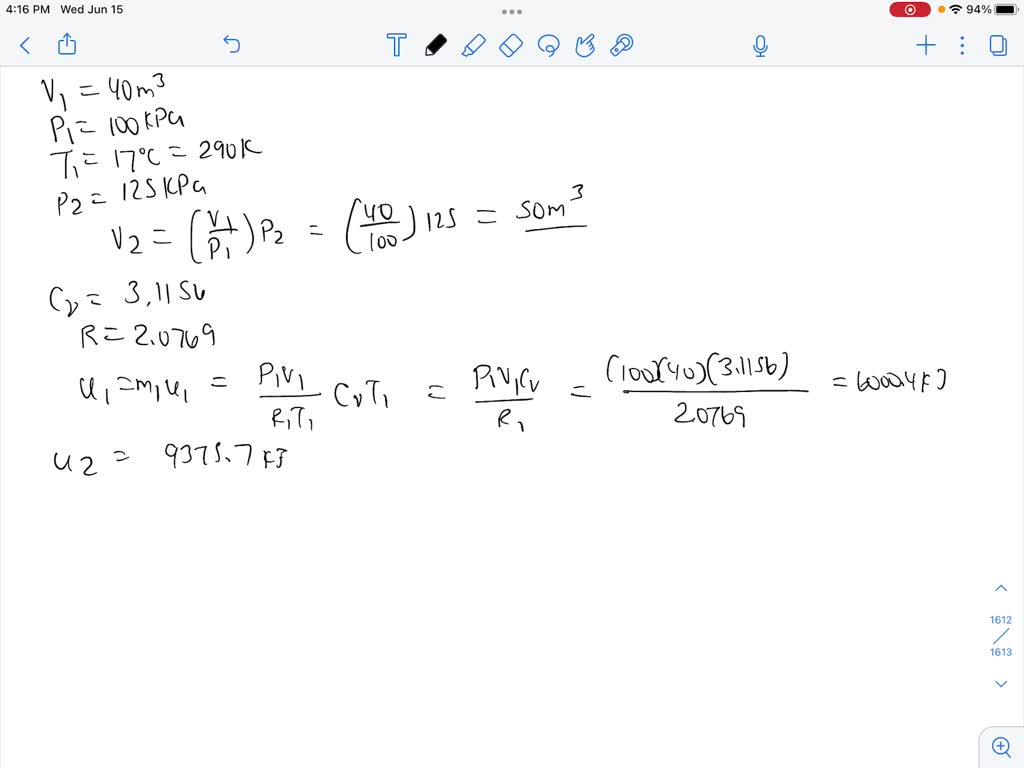 4:16 PM Wed Jun 15
94%
V₁ = 40m³
P₁ = 100 KPa
T₁ = 17°C = 290K
P₂ = 125 KPa
V₂ = (V₁/P₁) P₂ = (40/100) 125 = 50m³
Cᵥ = 3.1156
R = 2.0769
U₁ = m₁u₁ = P₁V₁/R₁T₁ CᵥT₁ = P₁V₁Cᵥ/R₁ = (100)(40)(3.1156)/2.0769 = 6000.4 kJ
U₂ = 9375.7 kJ
1612
1613